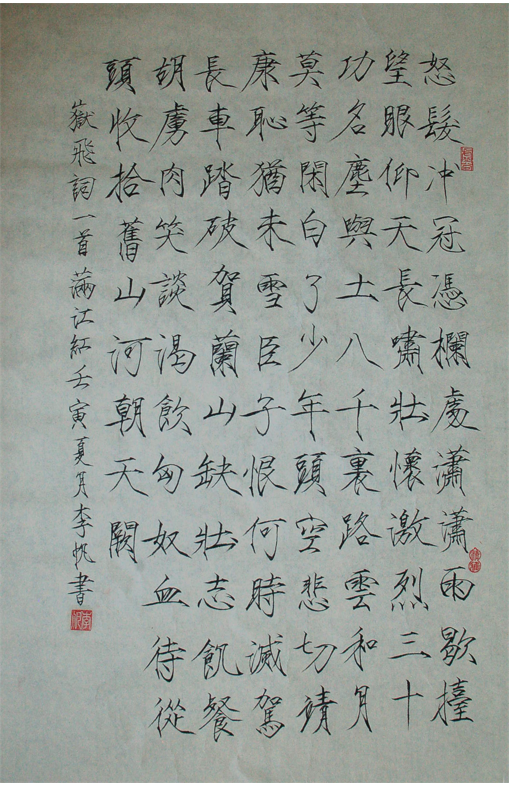 怒髮冲冠憑欄處瀟瀟雨歇擡
望眼仰天長嘯壯懷激烈三十
功名塵與土八千裏路雲和月
莫等閑白了少年頭空悲切靖
康恥猶未雪臣子恨何時滅駕
長車踏破賀蘭山缺壯志飢餐
胡虜肉笑談渴飲匈奴血待從
頭收拾舊山河朝天闕
嶽飛詞一首滿江紅壬寅夏月李帆書